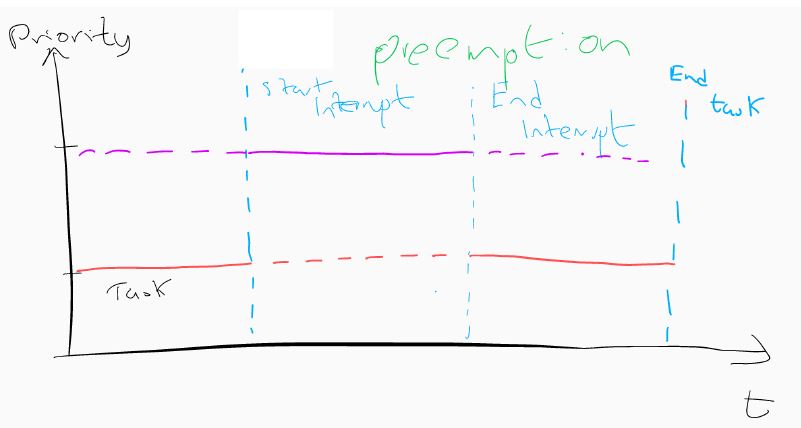 Priority
preemption
start
Interrupt
End
Interrupt
End
task
Task
t